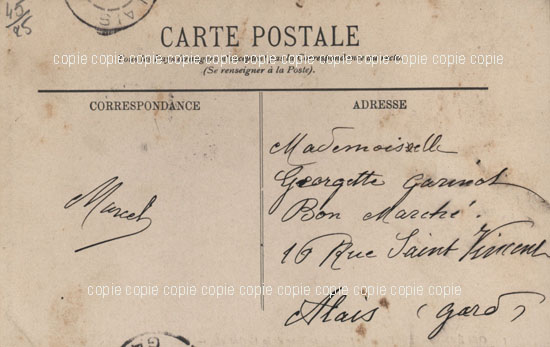 45/25
ALAIS
CARTE POSTALE
copie copie copie copie copie copie copie copie
(Se renseigner à la Poste).
CORRESPONDANCE
ADRESSE
Mademoiselle
Georgette
Bon Marché.
16 Rue Saint Vincent
Marcel
copie copie copie copie copie copie copie copie
Alais (Gard)